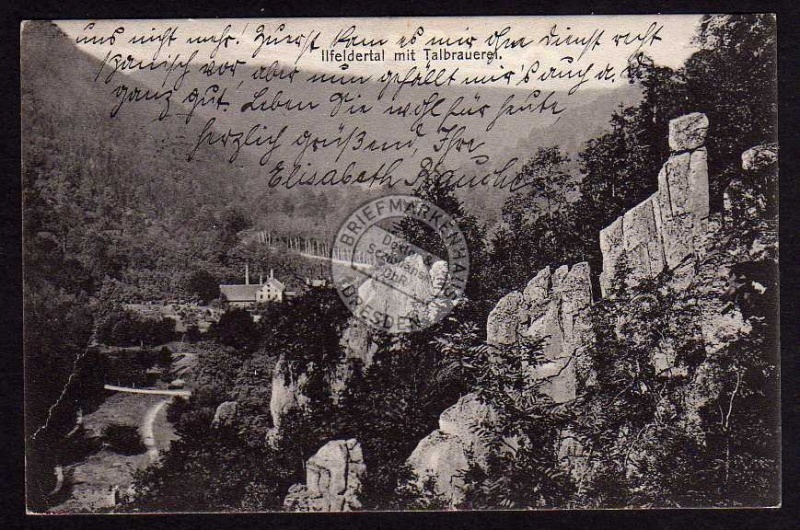 uns nicht mehr! Zuerst kam es mir ohm dienst recht
Ilfeldertal mit Talbrauerei.
spanisch vor aber nun gefällt mir's auch d.
ganz gut. Leben Sie wohl für heute
herzlich grüßend, Ihre
Elisabeth Rausche
BRIEFMARKEN
DRESDEN